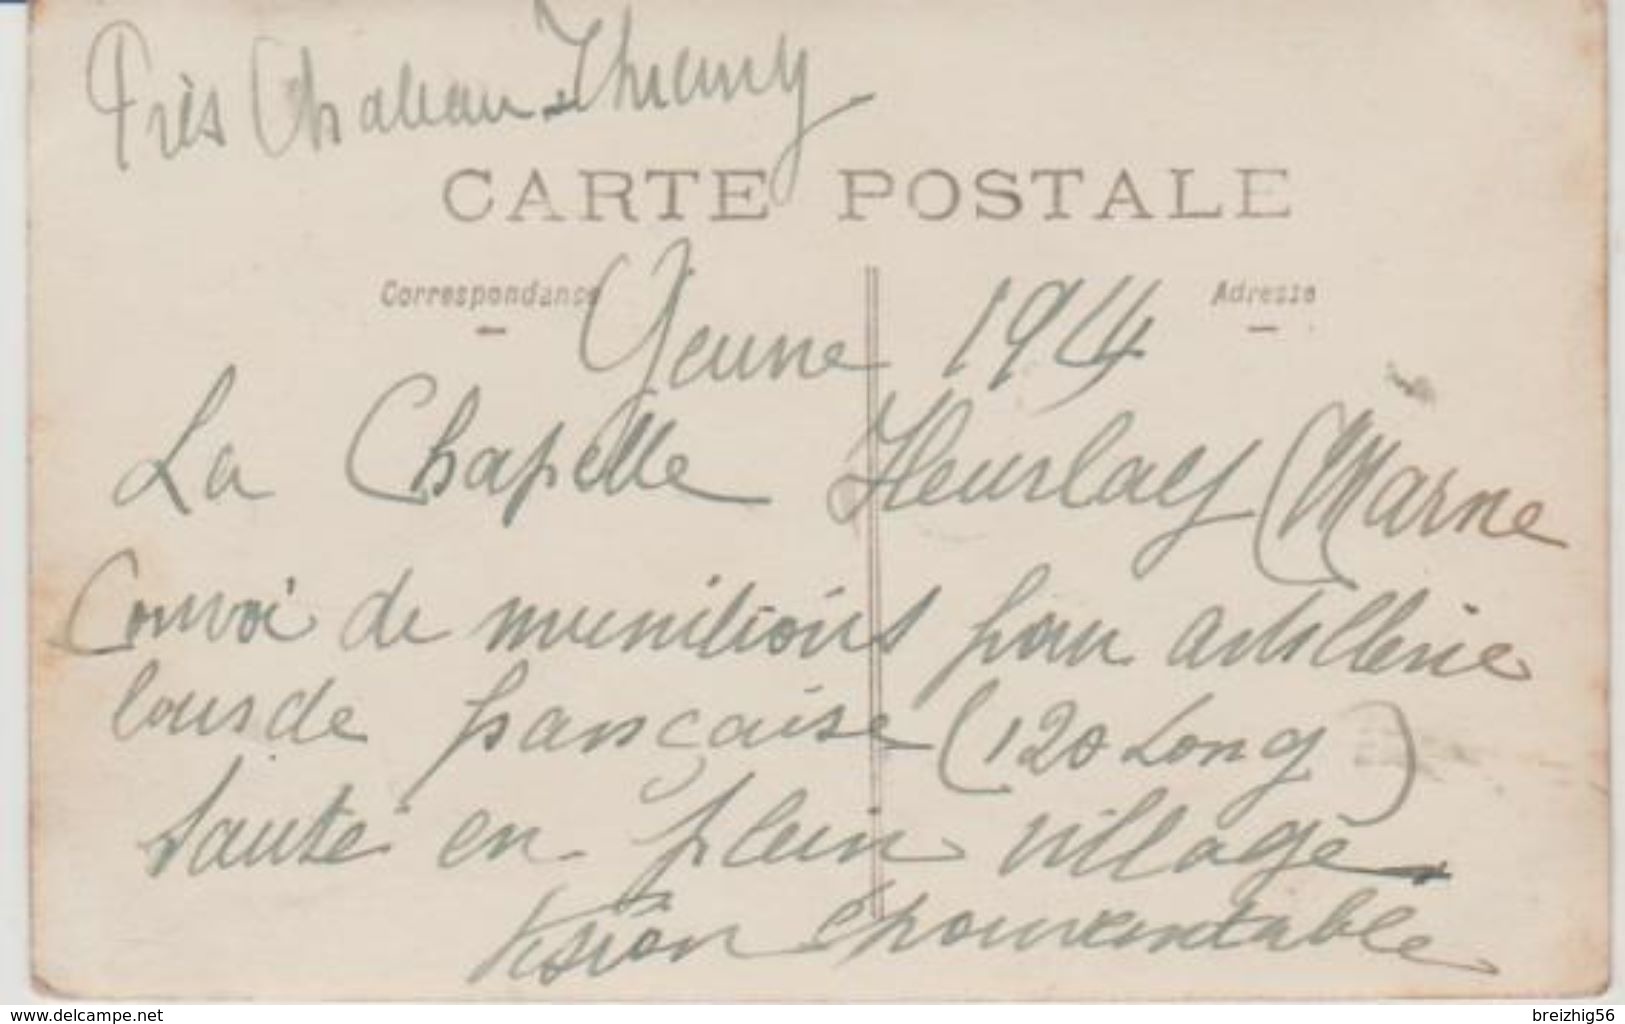 Près Chateau-Thierry
CARTE POSTALE
Correspondance
Adresse
1914
La Chapelle (Marne
Convoi de munitions pour artillerie
lourde française (120 Long)
sauté en plein village
Vision épouvantable
www.delcampe.net
breizhig56